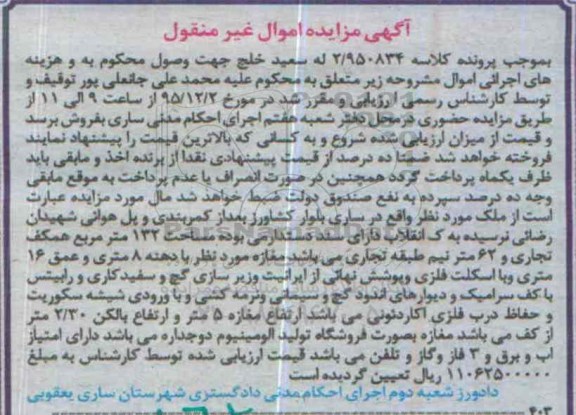 آگهی مزایده اموال غیر منقول
بموجب پرونده کلاسه ۲/۹۵۰۸۳۴ له سعید خلج جهت وصول محکوم به و هزینه
های اجرائی اموال مشروحه زیر متعلق به محکوم علیه محمد علی جانعلی پور توقیف و
توسط کارشناس رسمی ارزیابی و مقرر شد در مورخ ۹۵/۱۲/۲ از ساعت ۹ الی ۱۱ از
طریق مزایده حضوری در محل دفتر شعبه هفتم اجرای احکام مدنی ساری بفروش برسد
و قیمت از میزان ارزیابی شده شروع و به کسانی که بالاترین قیمت را پیشنهاد نمایند
فروخته خواهد شد ضمنا ده درصد از قیمت پیشنهادی نقدا از برنده اخذ و مابقی باید
ظرف یکماه پرداخت گردد همچنین در صورت انصراف یا عدم پرداخت به موقع مابقی
وجه ده درصد سپرده به نفع صندوق دولت ضبط خواهد شد مال مورد مزایده عبارت
است از ملک مورد نظر واقع در ساری بلوار کشاورز بعداز کمربندی و پل هوائی شهیدان
رضائی نرسیده به ک انقلاب دارای سند دستدارمی بوده مساحت ۱۳۲ متر مربع همکف
تجاری و ۶۲ متر نیم طبقه تجاری می باشد مغازه مورد نظر با دهنه ۸ متری و عمق ۱۶
متری وبا اسکلت فلزی وپوشش نهائی از ایرانیت وزیر سازی گچ و سفیدکاری و رابیتس
با کف سرامیک و دیوارهای اندود گچ و سیمانی ونرمه کشی و با ورودی شیشه سکوریت
و حفاظ درب فلزی آکاردئونی می باشد ارتفاع مغازه ۵ متر و ارتفاع بالکن ۲/۳۰ متر
از کف می باشد مغازه بصورت فروشگاه تولید الومینیوم دوجداره می باشد دارای امتیاز
اب و برق و ۳ فاز وگاز و تلفن می باشد قیمت ارزیابی شده توسط کارشناس به مبلغ
۱۱۰۶۲۵۰۰۰۰۰ ریال تعیین گردیده است
دادورز شعبه دوم اجرای احکام مدنی دادگستری شهرستان ساری یعقوبی
۴۰۳